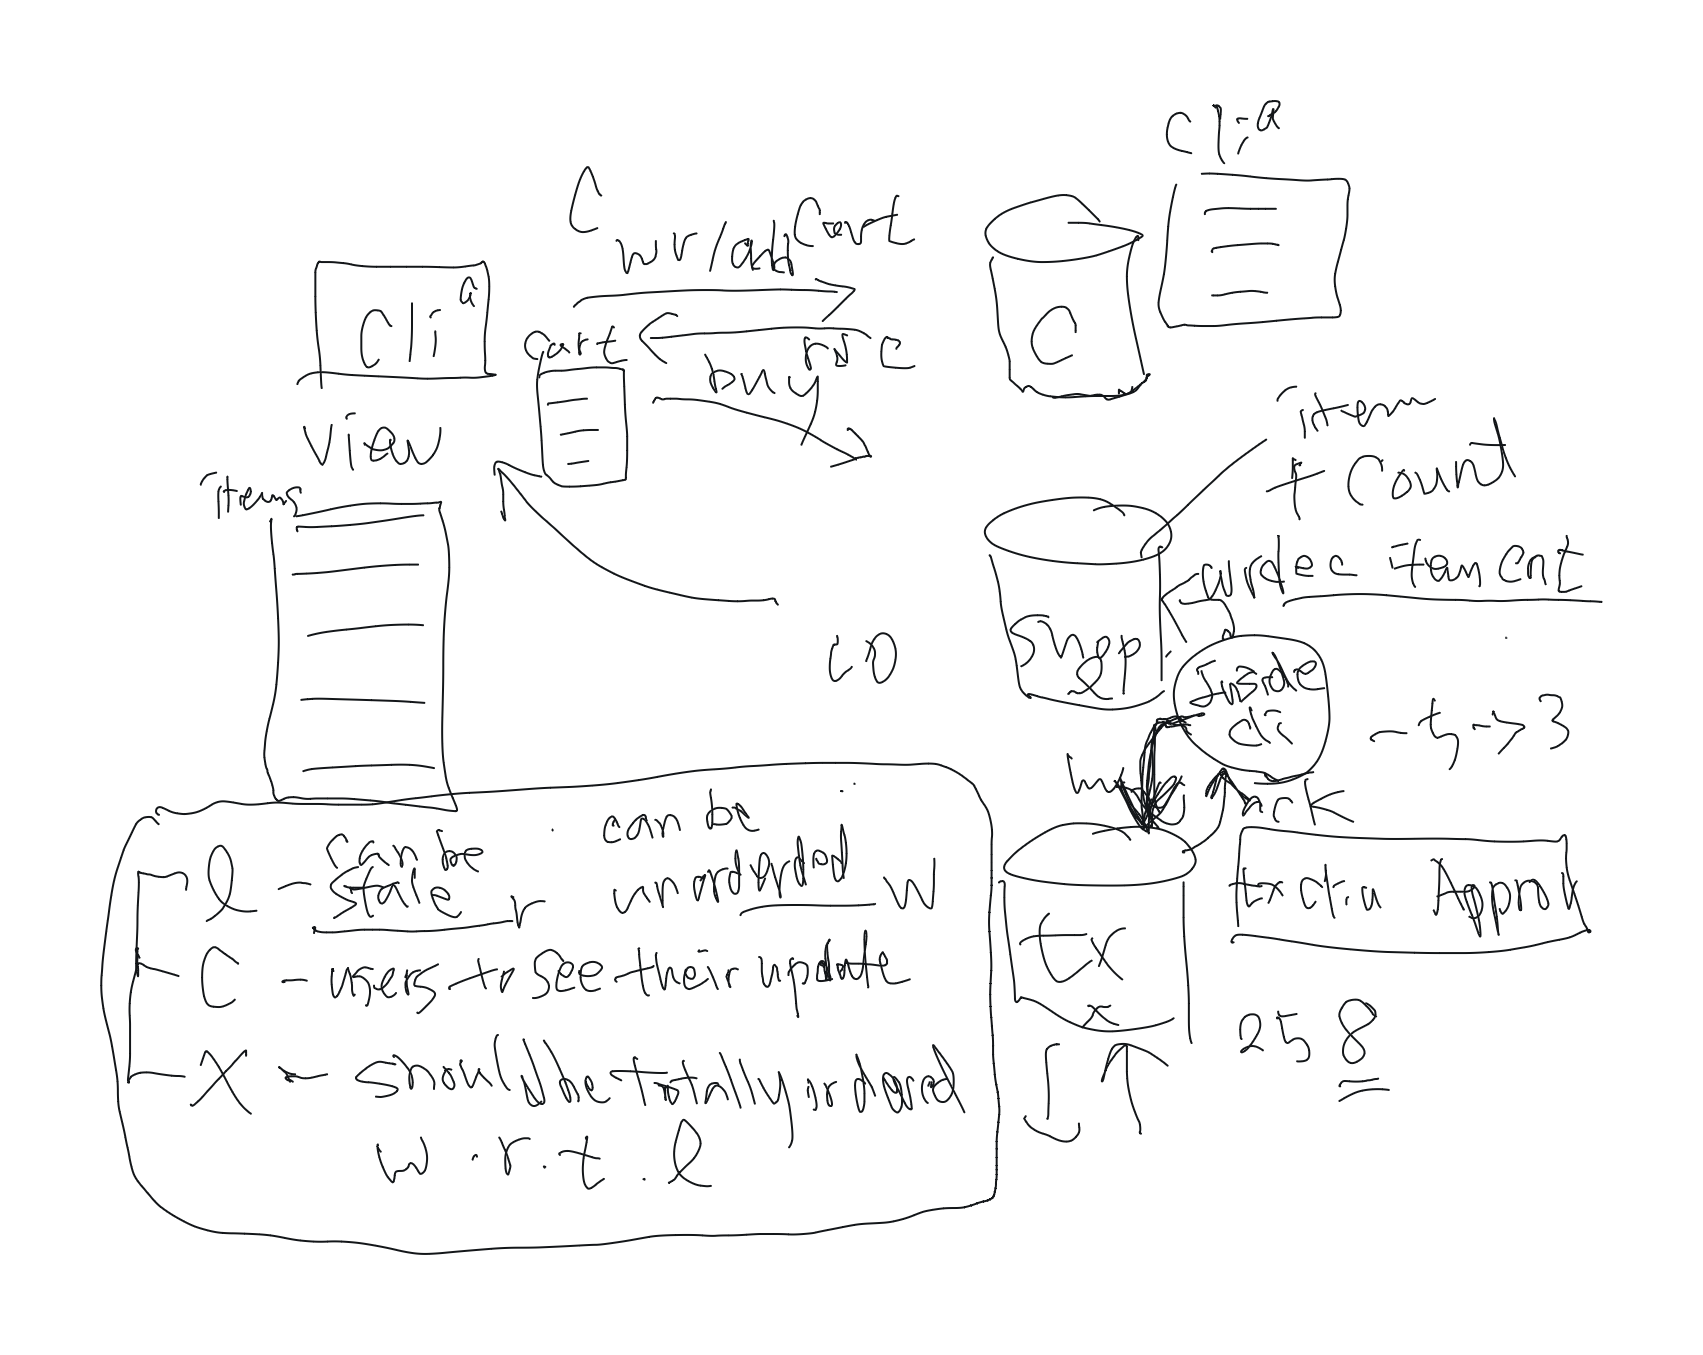 Cli a
C
wr/add Cart
Cli a
C
cart
r C
buy
view
items
item
+ Count
wr dec item cnt
l
Inside
cli
-5->3
ack
tx
x
25 8
l - can be stale r can be unorderded w
C - users to see their update
X - should be totally ordered
w.r.t. l